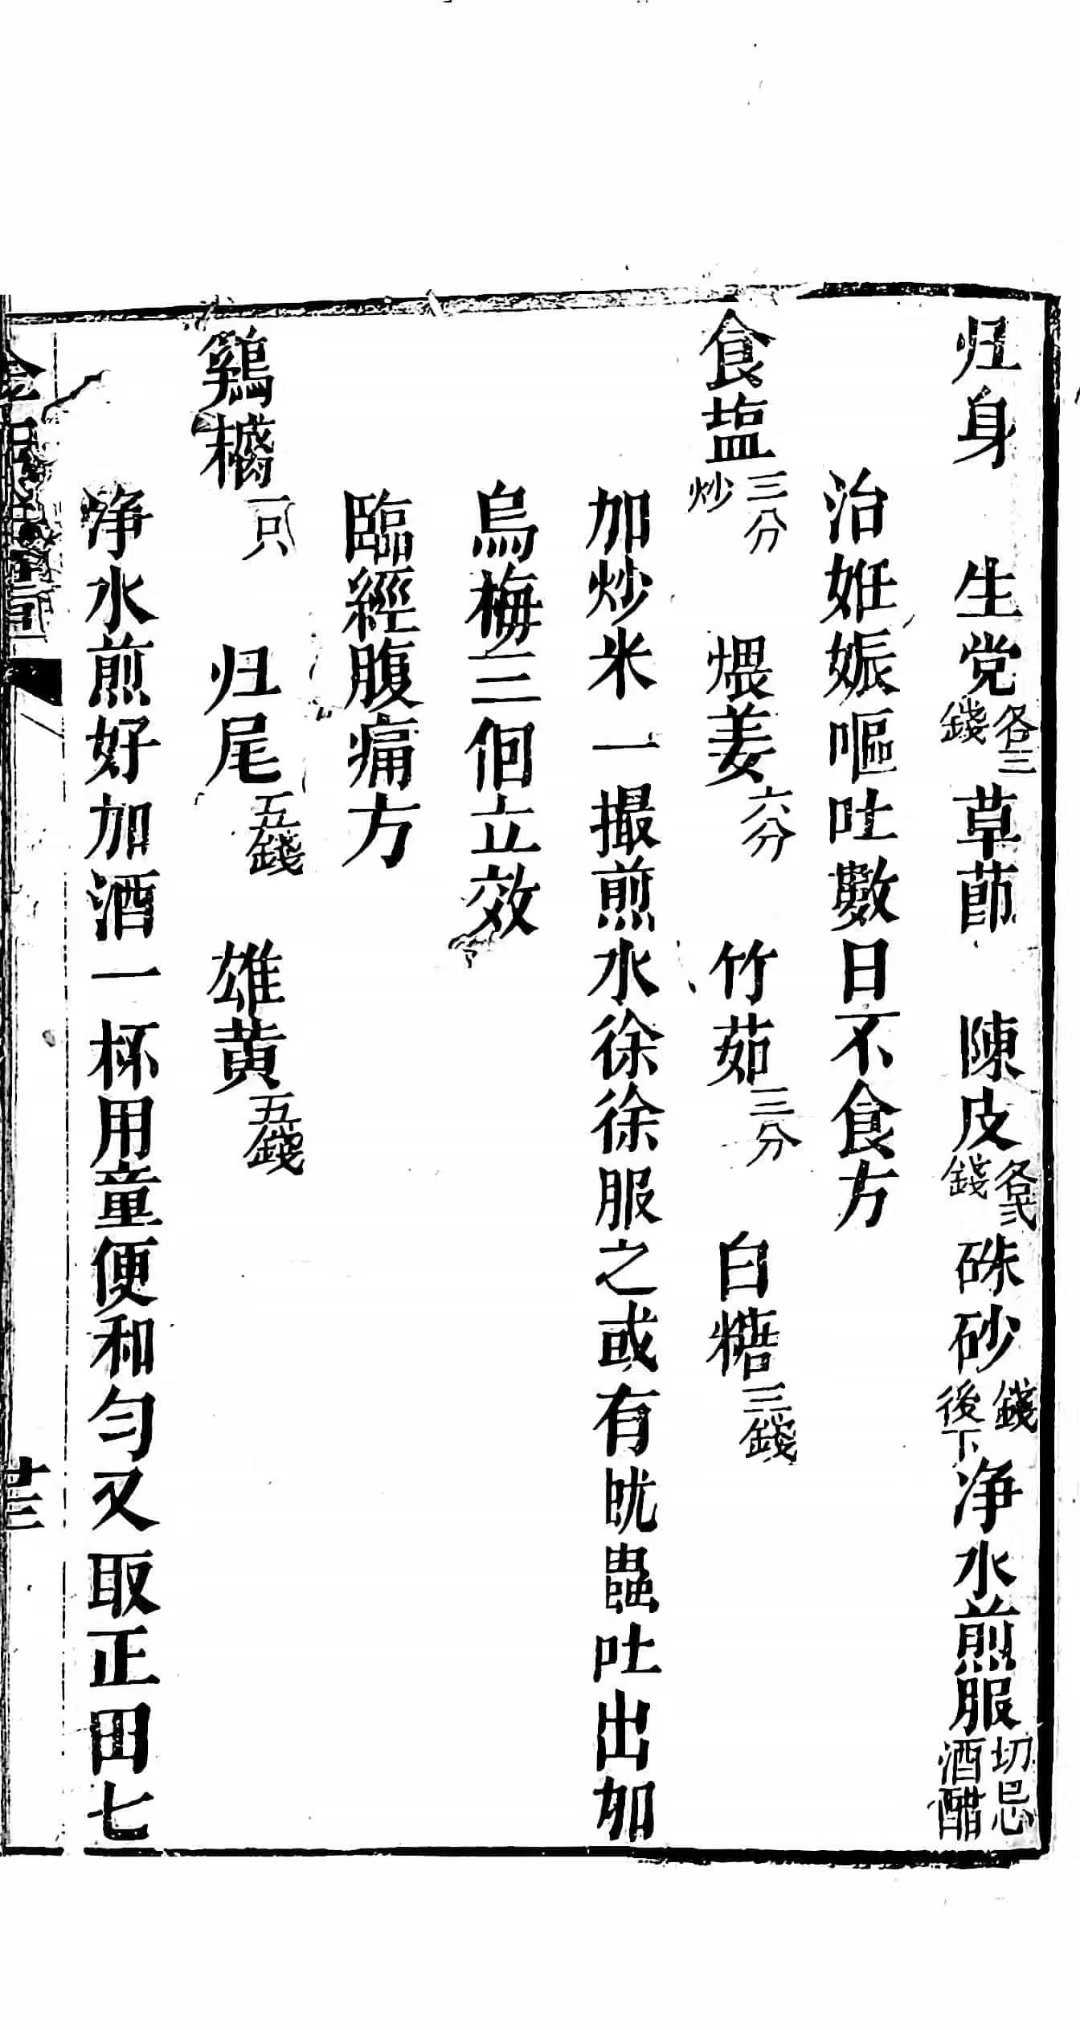 归身　生党各三錢草莭　陳皮各弍錢硃砂錢後下净水煎服切忌酒醋
治姙娠嘔吐數日不食方
食塩三分炒　煨姜六分　竹茹三分　白糖三錢
加炒米一撮煎水徐徐服之或有蚘蟲吐出加
烏梅三個立效
臨經腹痛方
鷄一只　归尾五錢　雄黄五錢
净水煎好加酒一杯用童便和匀又取正田七
廿三